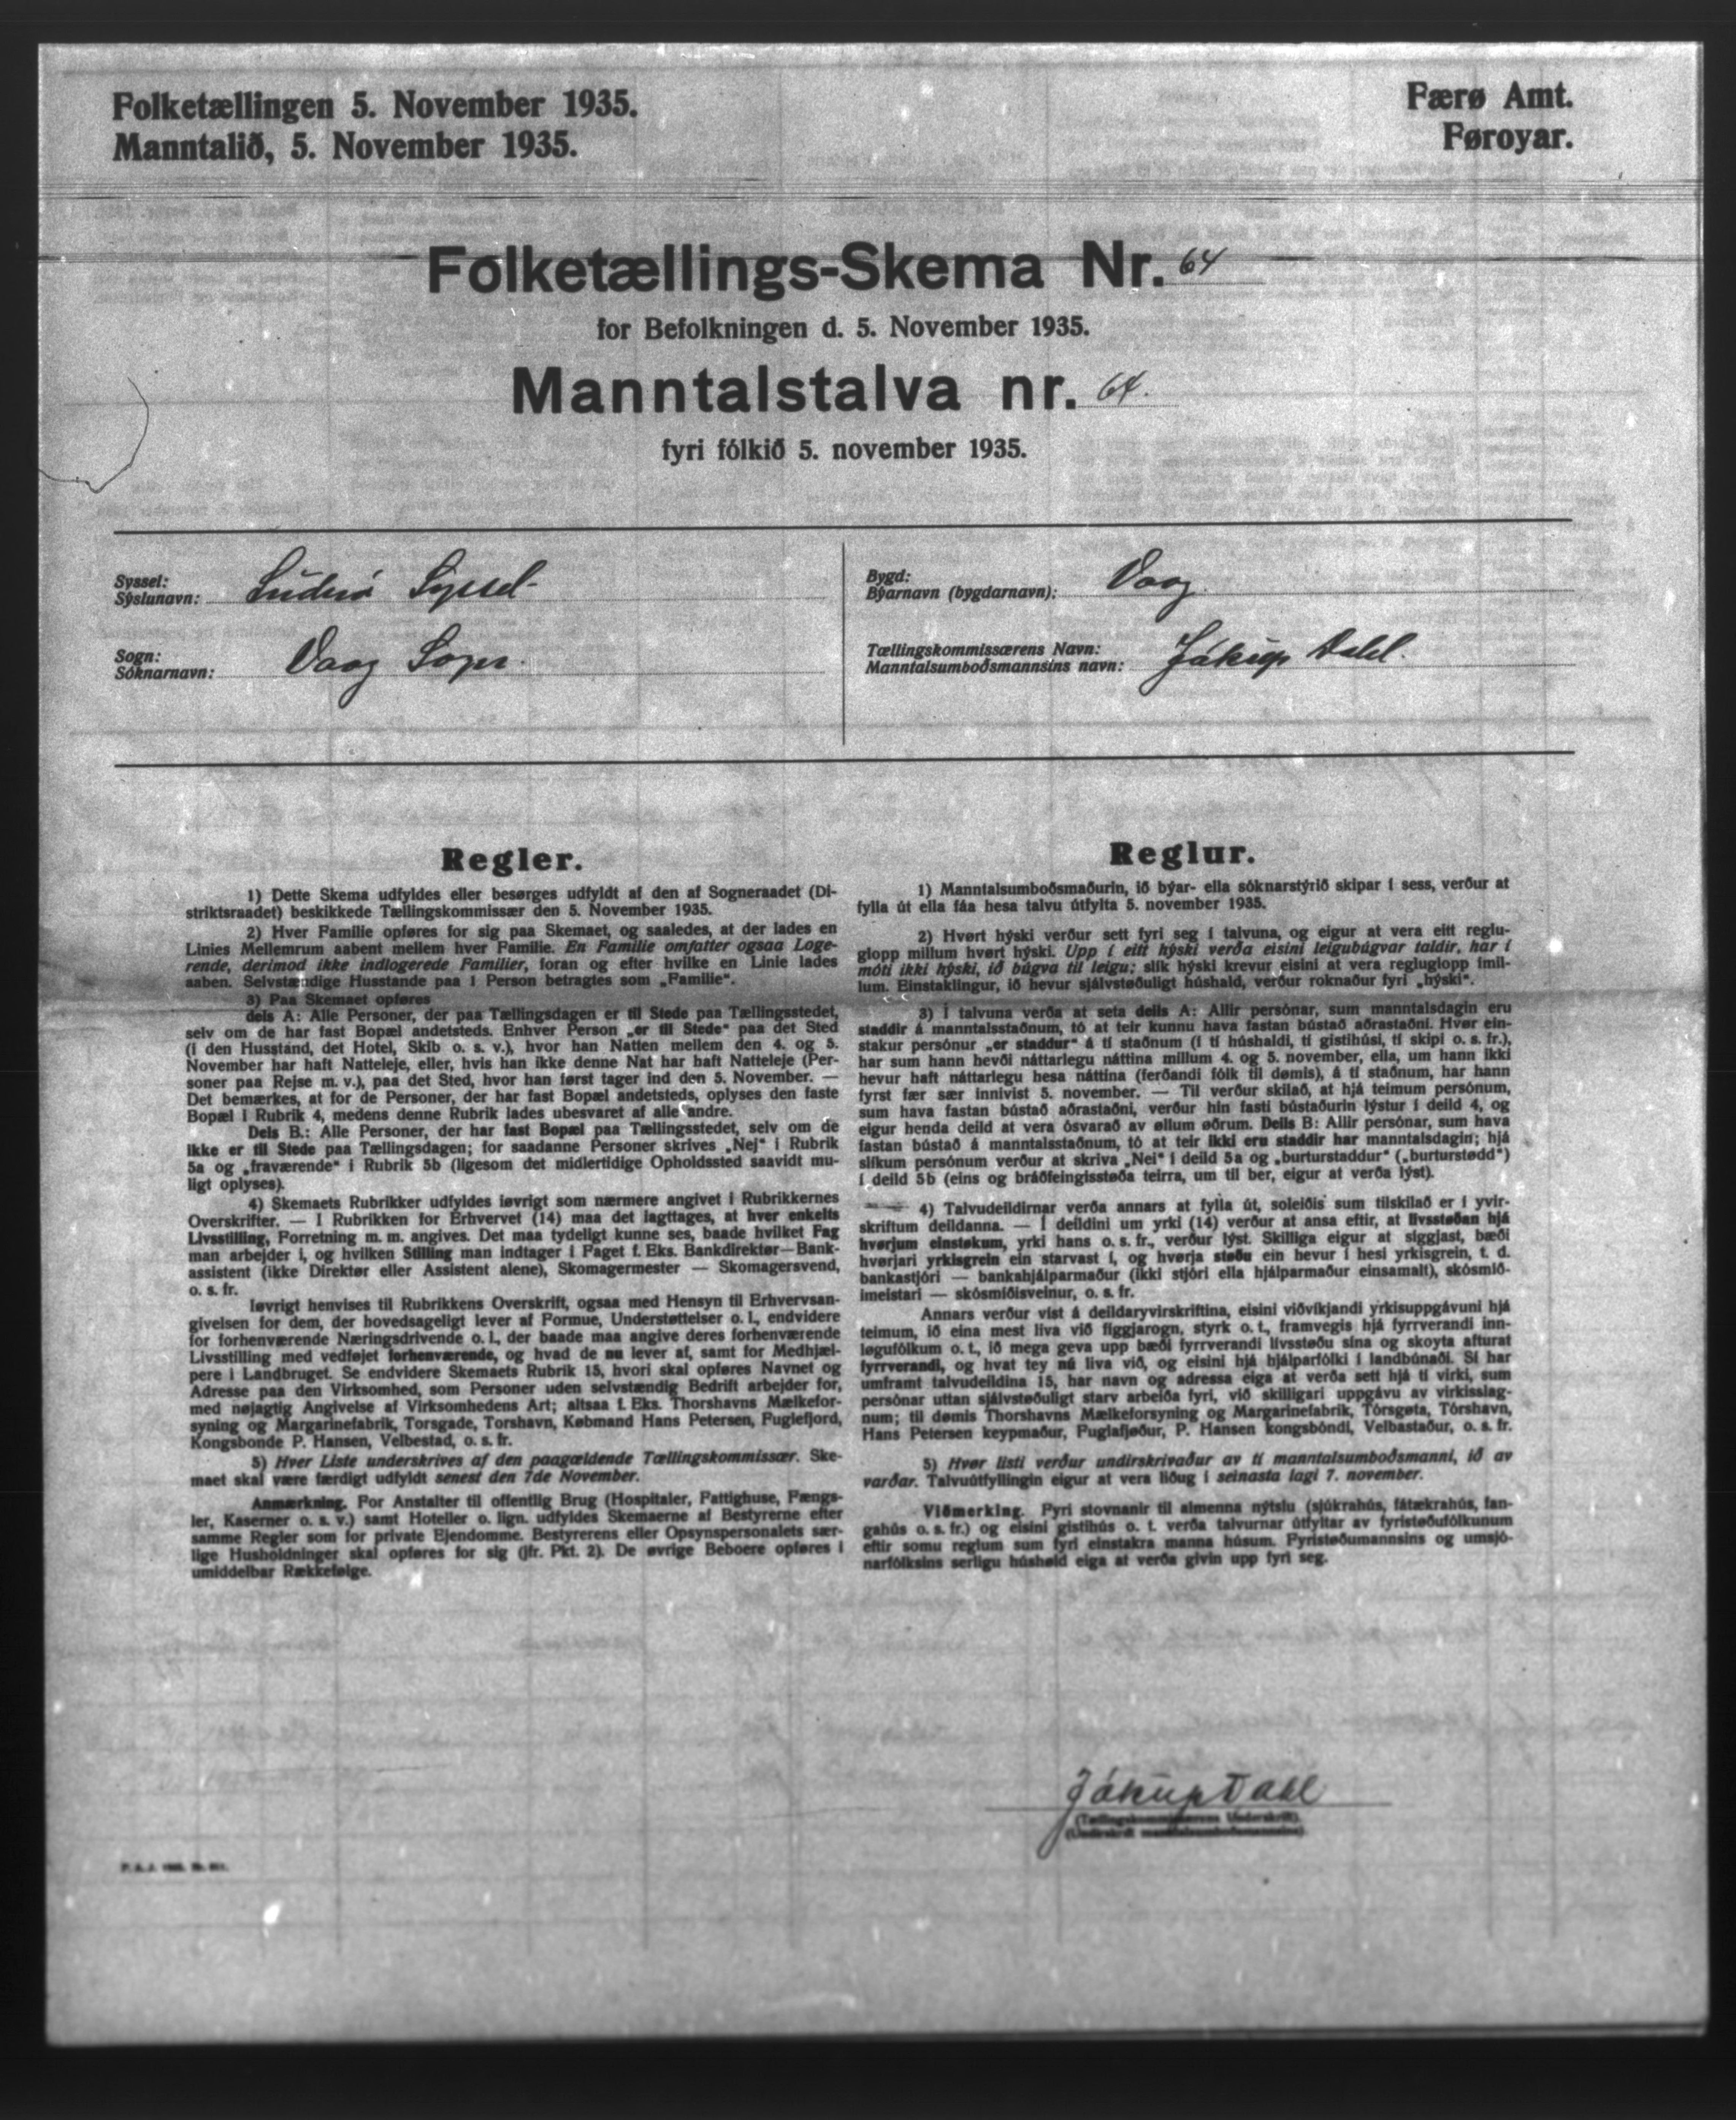 Folketællingen 5. November 1935.
Manntalið, 5. November 1935.
Færø Amt.
Føroyar.
Folketællings-Skema Nr. 64
for Befolkningen d. 5. November 1935.
Manntalstalva nr. 64.
fyri fólkið 5. november 1935.
Syssel:
Sýslunavn: Suderø Syssel
Sogn:
Sóknarnavn: Vaag Sogn.
Bygd:
Býarnavn (bygdarnavn): Vaag
Tællingskommissærens Navn:
Manntalsumboðsmannsins navn: Jákup Dahl.
Regler.
1) Dette Skema udfyldes eller besørges udfyldt af den af Sogneraadet (Di-
striktsraadet) beskikkede Tællingskommissær den 5. November 1935.
2) Hver Familie opføres for sig paa Skemaet, og saaledes, at der lades en
Linies Mellemrum aabent mellem hver Familie. En Familie omfatter ogsaa Loge-
rende, derimod ikke indlogerede Familier, foran og efter hvilke en Linie lades
aaben. Selvstændige Husstande paa 1 Person betragtes som „Familie“.
3) Paa Skemaet opføres
dels A: Alle Personer, der paa Tællingsdagen er til Stede paa Tællingsstedet,
selv om de har fast Bopæl andetsteds. Enhver Person „er til Stede“ paa det Sted
(i den Husstand, det Hotel, Skib o. s. v.), hvor han Natten mellem den 4. og 5.
November har haft Natteleje, eller, hvis han ikke denne Nat har haft Natteleje (Per-
soner paa Rejse m. v.), paa det Sted, hvor han først tager ind den 5. November. —
Det bemærkes, at for de Personer, der har fast Bopæl andetsteds, oplyses den faste
Bopæl i Rubrik 4, medens denne Rubrik lades ubesvaret af alle andre.
Dels B.: Alle Personer, der har fast Bopæl paa Tællingsstedet, selv om de
ikke er til Stede paa Tællingsdagen; for saadanne Personer skrives „Nej“ i Rubrik
5a og „fraværende“ i Rubrik 5b (ligesom det midlertidige Opholdssted saavidt mu-
ligt oplyses).
4) Skemaets Rubrikker udfyldes iøvrigt som nærmere angivet i Rubrikkernes
Overskrifter. — I Rubrikken for Erhvervet (14) maa det iagttages, at hver enkelts
Livsstilling, Forretning m. m. angives. Det maa tydeligt kunne ses, baade hvilket Fag
man arbejder i, og hvilken Stilling man indtager i Faget f. Eks. Bankdirektør—Bank-
assistent (ikke Direktør eller Assistent alene), Skomagermester — Skomagersvend,
o. s. fr.
Iøvrigt henvises til Rubrikkens Overskrift, ogsaa med Hensyn til Erhvervsan-
givelsen for dem, der hovedsageligt lever af Formue, Understøttelser o. l., endvidere
for forhenværende Næringsdrivende o. l., der baade maa angive deres forhenværende
Livsstilling med vedføjet forhenværende, og hvad de nu lever af, samt for Medhjæl-
pere i Landbruget. Se endvidere Skemaets Rubrik 15, hvori skal opføres Navnet og
Adresse paa den Virksomhed, som Personer uden selvstændig Bedrift arbejder for,
med nøjagtig Angivelse af Virksomhedens Art; altsaa f. Eks. Thorshavns Mælkefor-
syning og Margarinefabrik, Torsgade, Torshavn, Købmand Hans Petersen, Fuglefjord,
Kongsbonde P. Hansen, Velbestad, o. s. fr.
5) Hver Liste underskrives af den paagældende Tællingskommissær. Ske-
maet skal være færdigt udfyldt senest den 7de November.
Anmærkning. For Anstalter til offentlig Brug (Hospitaler, Fattighuse, Fængs-
ler, Kaserner o. s. v.) samt Hoteller o. lign. udfyldes Skemaerne af Bestyrerne efter
samme Regler som for private Ejendomme. Bestyrerens eller Opsynspersonalets sær-
lige Husholdninger skal opføres for sig (jfr. Pkt. 2). De øvrige Beboere opføres i
umiddelbar Rækkefølge.
Reglur.
1) Manntalsumboðsmaðurin, ið býar- ella sóknarstýrið skipar í sess, verður at
fylla út ella fáa hesa talvu útfylta 5. november 1935.
2) Hvørt hýski verður sett fyri seg í talvuna, og eigur at vera eitt reglu-
glopp millum hvørt hýski. Upp í eitt hýski verða eisini leigubúgvar taldir, har í
móti ikki hýski, ið búgva til leigu; slík hýski krevur eisini at vera regluglopp ímil-
lum. Einstaklingur, ið hevur sjálvstøðuligt húshald, verður roknaður fyri „hýski“.
3) Í talvuna verða at seta deils A: Allir persónar, sum manntalsdagin eru
staddir á manntalsstaðnum, tó at teir kunnu hava fastan bústað aðrastaðni. Hvør ein-
stakur persónur „er staddur“ á tí staðnum (í tí húshaldi, tí gistihúsi, tí skipi o. s. fr.),
har sum hann hevði náttarlegu náttina millum 4. og 5. november, ella, um hann ikki
hevur haft náttarlegu hesa náttina (ferðandi fólk til dømis), á tí staðnum, har hann
fyrst fær sær innivist 5. november. — Til verður skilað, at hjá teimum persónum,
sum hava fastan bústað aðrastaðni, verður hin fasti bústaðurin lýstur í deild 4, og
eigur henda deild at vera ósvarað av øllum øðrum. Deils B: Allir persónar, sum hava
fastan bústað á manntalsstaðnum, tó at teir ikki eru staddir har manntalsdagin; hjá
slíkum persónum verður at skriva „Nei“ í deild 5a og „burturstaddur“ („burturstødd“)
í deild 5b (eins og bráðfeingisstøða teirra, um til ber, eigur at verða lýst).
4) Talvudeildirnar verða annars at fylla út, soleiðis sum tilskilað er í yvir-
skriftum deildanna. — Í deildini um yrki (14) verður at ansa eftir, at livsstøðan hjá
hvørjum einstøkum, yrki hans o. s. fr., verður lýst. Skilliga eigur at siggjast, bæði
hvørjari yrkisgrein ein starvast í, og hvørja støðu ein hevur í hesi yrkisgrein, t. d.
bankastjóri — bankahjálparmaður (ikki stjóri ella hjálparmaður einsamalt), skósmið-
imeistari — skósmiðisveinur, o. s. fr.
Annars verður víst á deildaryvirskriftina, eisini viðvíkjandi yrkisuppgávuni hjá
teimum, ið eina mest liva við figgjarogn, styrk o. t., framvegis hjá fyrrverandi inn-
løgufólkum o. t., ið mega geva upp bæði fyrrverandi livsstøðu sína og skoyta afturat
fyrrverandi, og hvat tey nú liva við, og eisini hjá hjálparfólki í landbúnaði. Sí har
umframt talvudeildina 15, har navn og adressa eiga at verða sett hjá tí virki, sum
persónar uttan sjálvstøðuligt starv arbeiða fyri, við skilligari uppgávu av virkisslag-
num; til dømis Thorshavns Mælkeforsyning og Margarinefabrik, Tórsgøta, Tórshavn,
Hans Petersen keypmaður, Fuglafjøður, P. Hansen kongsbóndi, Velbastaður, o. s. fr.
5) Hvør listi verður undirskrivaður av tí manntalsumboðsmanni, ið av
varðar. Talvuútfyllingin eigur at vera liðug í seinasta lagi 7. november.
Viðmerking. Fyri stovnanir til almenna nýtslu (sjúkrahús, fátækrahús, fan-
gahús o. s. fr.) og eisini gistihús o. t. verða talvurnar útfyltar av fyristøðufólkunum
eftir somu reglum sum fyri einstakra manna húsum. Fyristøðumannsins og umsjó-
narfólksins serligu húshøld eiga at verða givin upp fyri seg.
Jákup Dahl
(Tællingskommissærens Underskrift).
(Undirskrift manntalsumboðsmannsins).